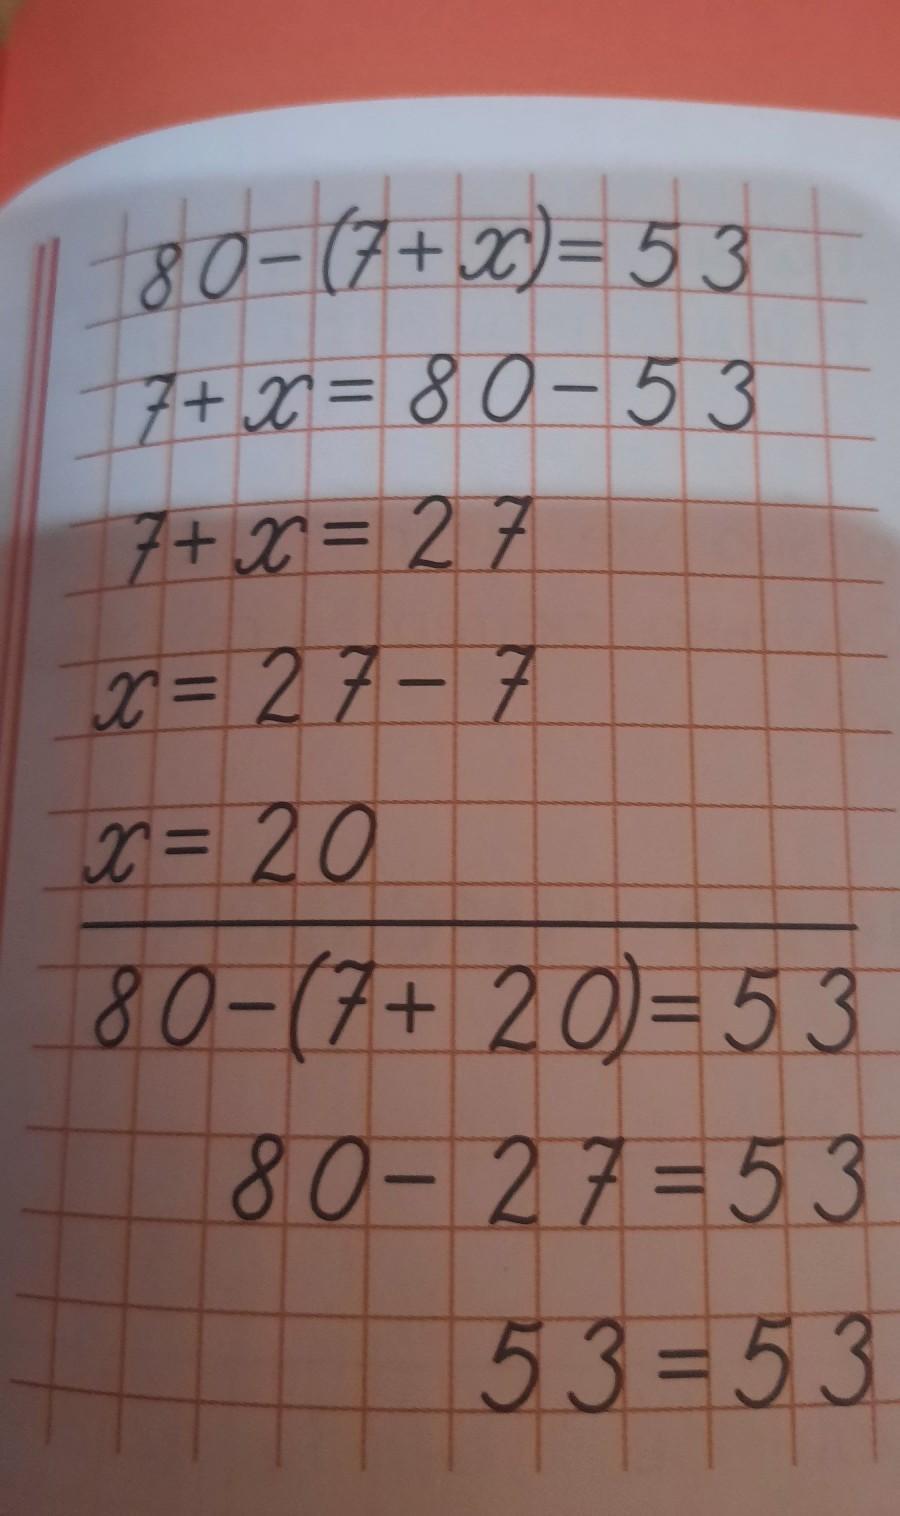 80-(7+x)=53
7+x=80-53
7+x=27
x=27-7
x=20
80-(7+20)=53
80-27=53
53=53